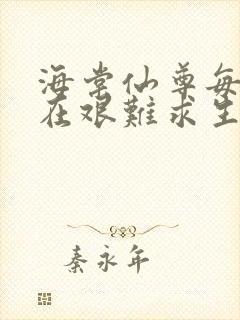 海棠仙尊每
在艰難求生
秦永年